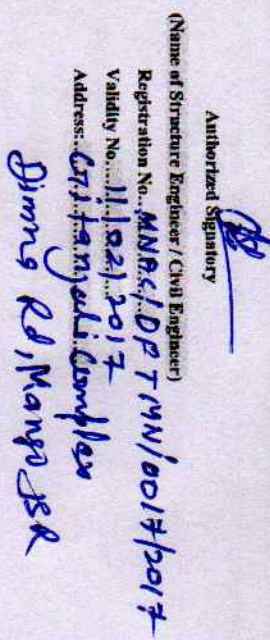 Authorized Signatory
(Name of Structure Engineer / Civil Engineer)
Registration No...MNAC/DPTMN/0017/2017
Validity No....11/02/2017
Address:..Gitanjali Complex
Dimng Rd, Mango JSR